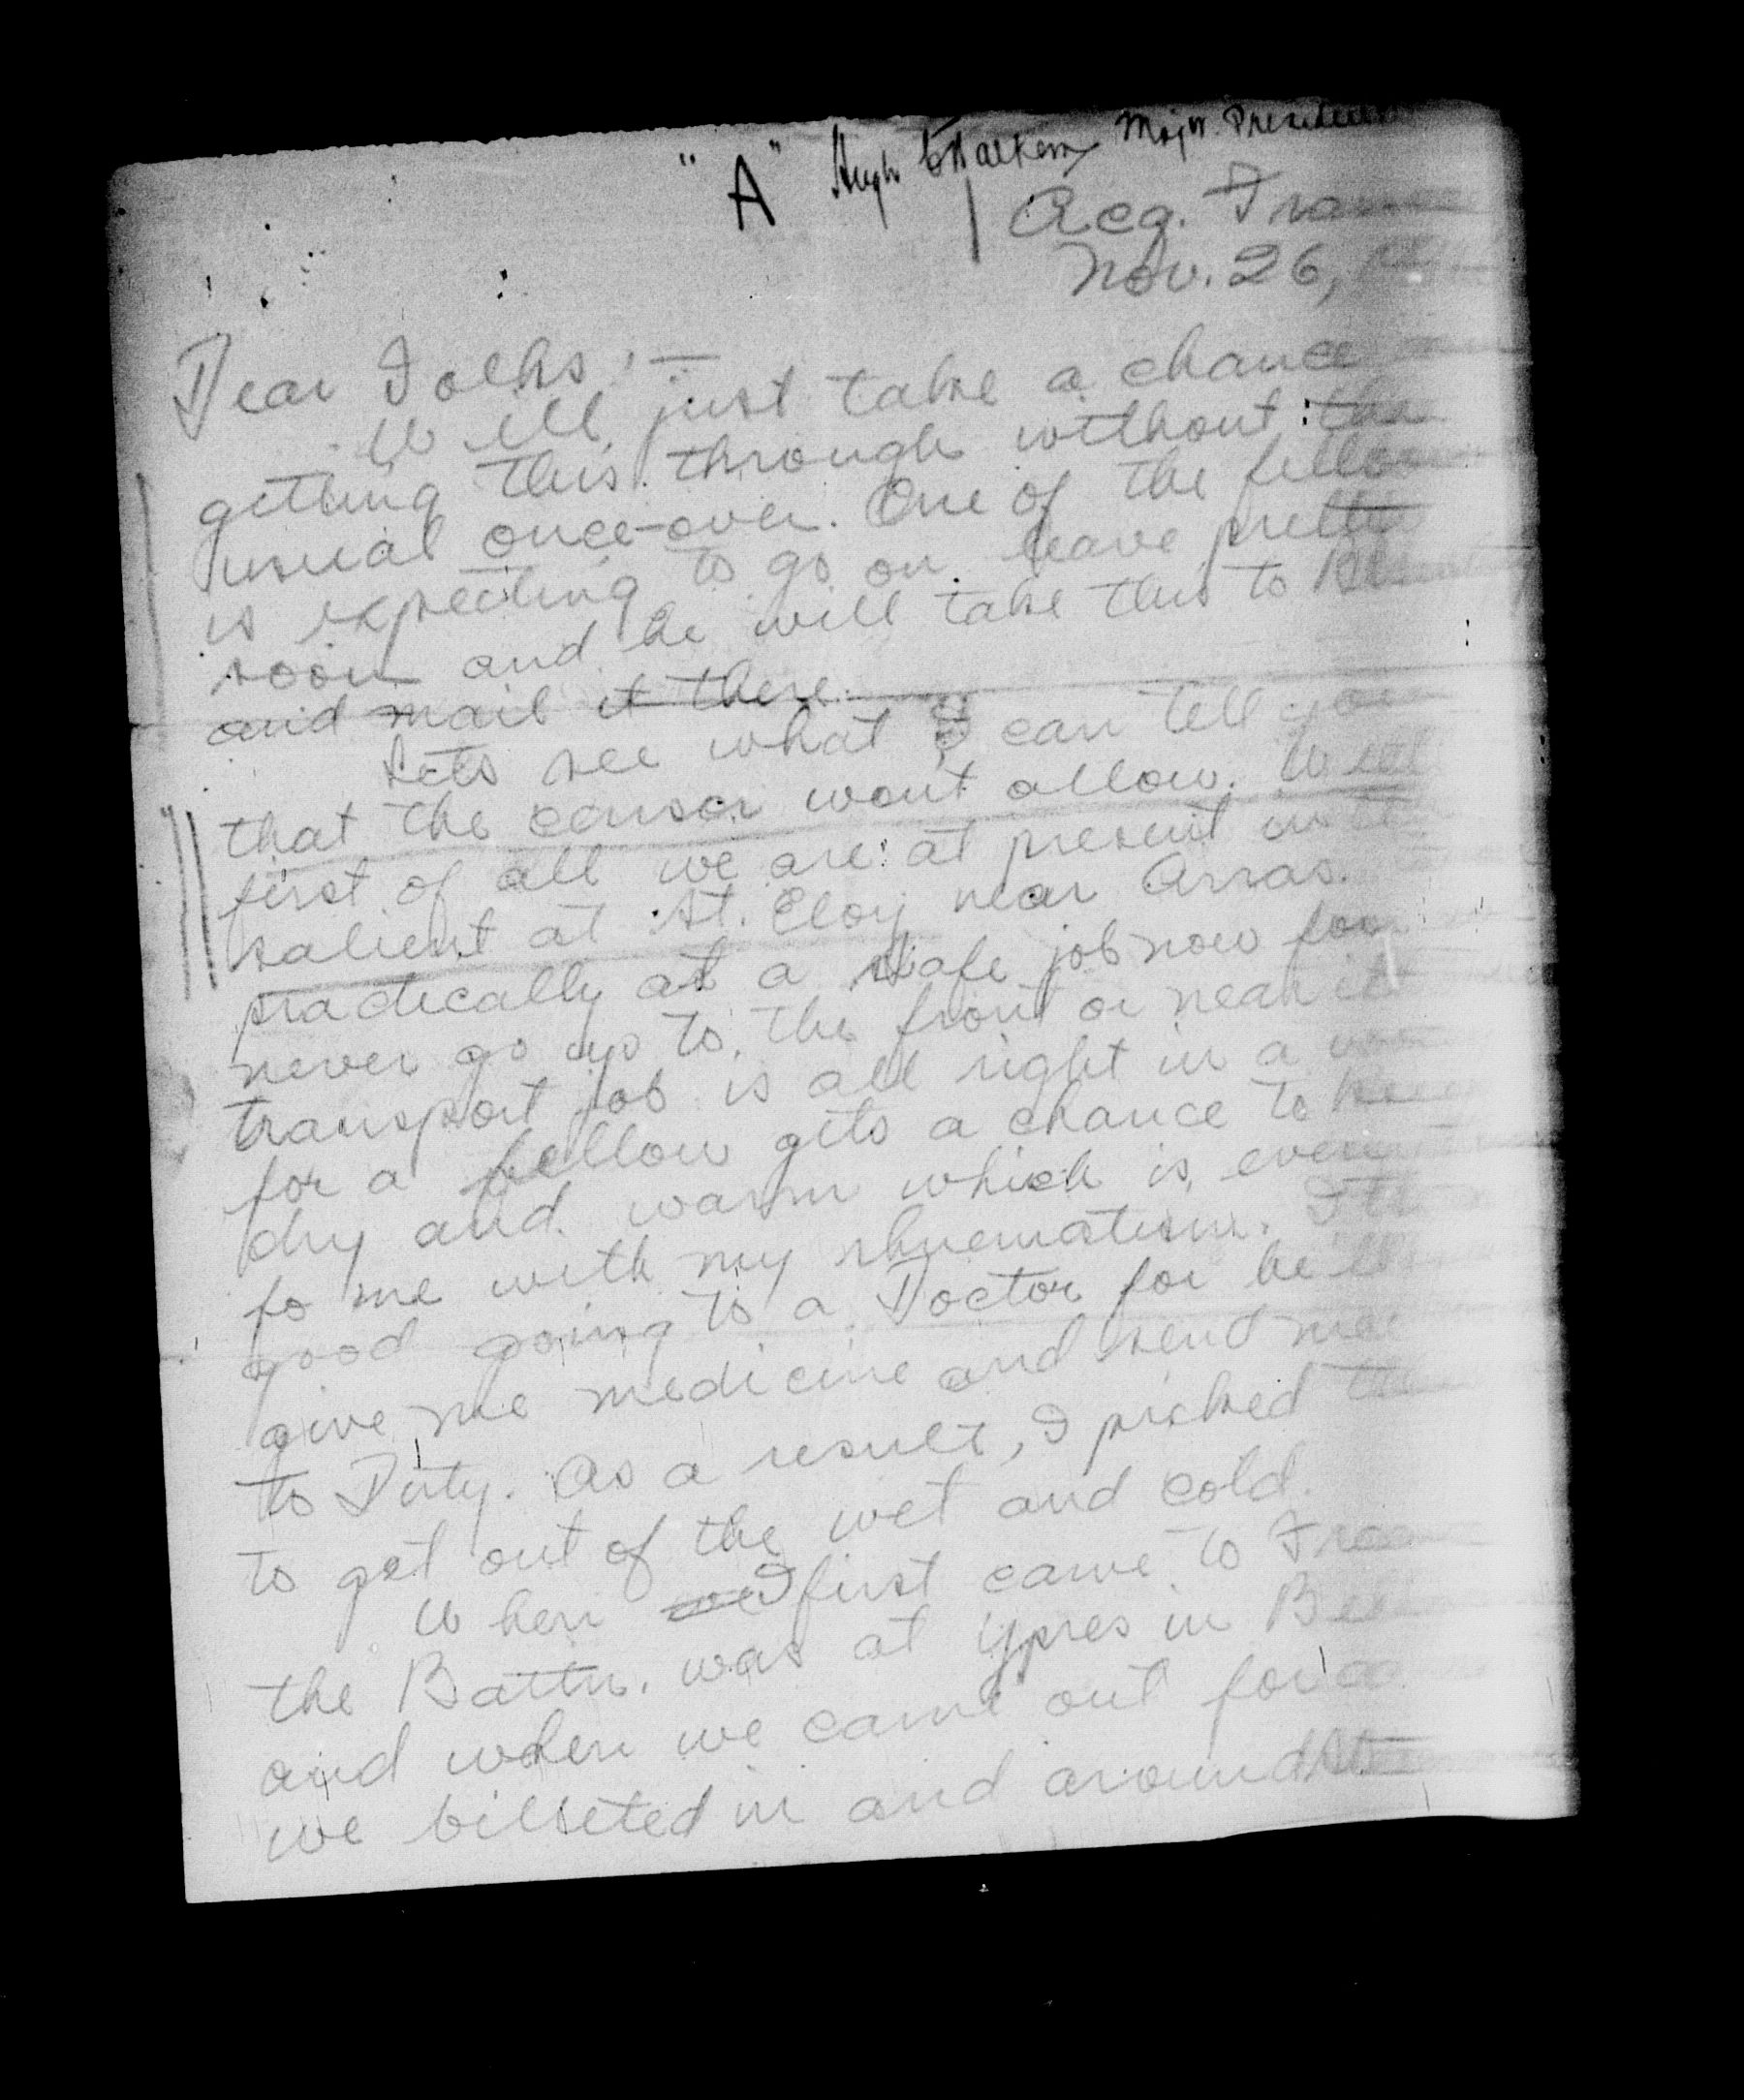 "A" Hugh Major. President
Acq. France
Nov. 26,
Dear Folks:—
Will just take a chance
getting this through without the
usual once-over. One of the fellows
is expecting to go on leave pretty
soon and he will take this to
and mail it there.
Lets see what I can tell you
that the censor wont allow. Well
first of all we are at present in the
salient at St. Eloy near Arras.
practically at a safe job now for
never go up to the front or near it
transport job is all right in a way
for a fellow gets a chance to keep
dry and warm which is every
to me with my rhuematism.
good going to a Doctor for he'll
give me medicine and send me
to Duty. As a result, I picked
to get out of the wet and cold.
When I first came to France
the Battn. was at Ypres in
and when we came out for a
we billeted in and around